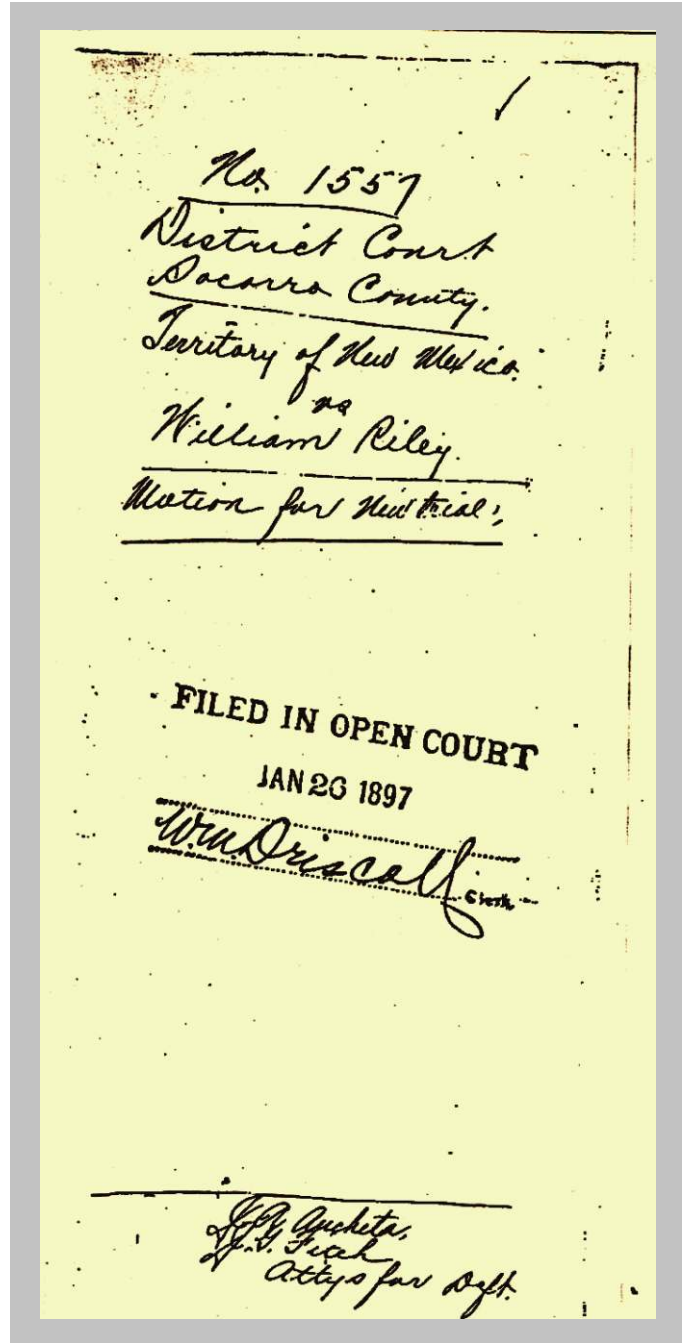 No. 1557
District Court
Socorro County.
Territory of New Mexico.
vs
William Riley.
Motion for New trial.
FILED IN OPEN COURT
JAN 20 1897
W.M. Driscoll
Clerk.
Ancheta,
Fitch
Attys for Deft.